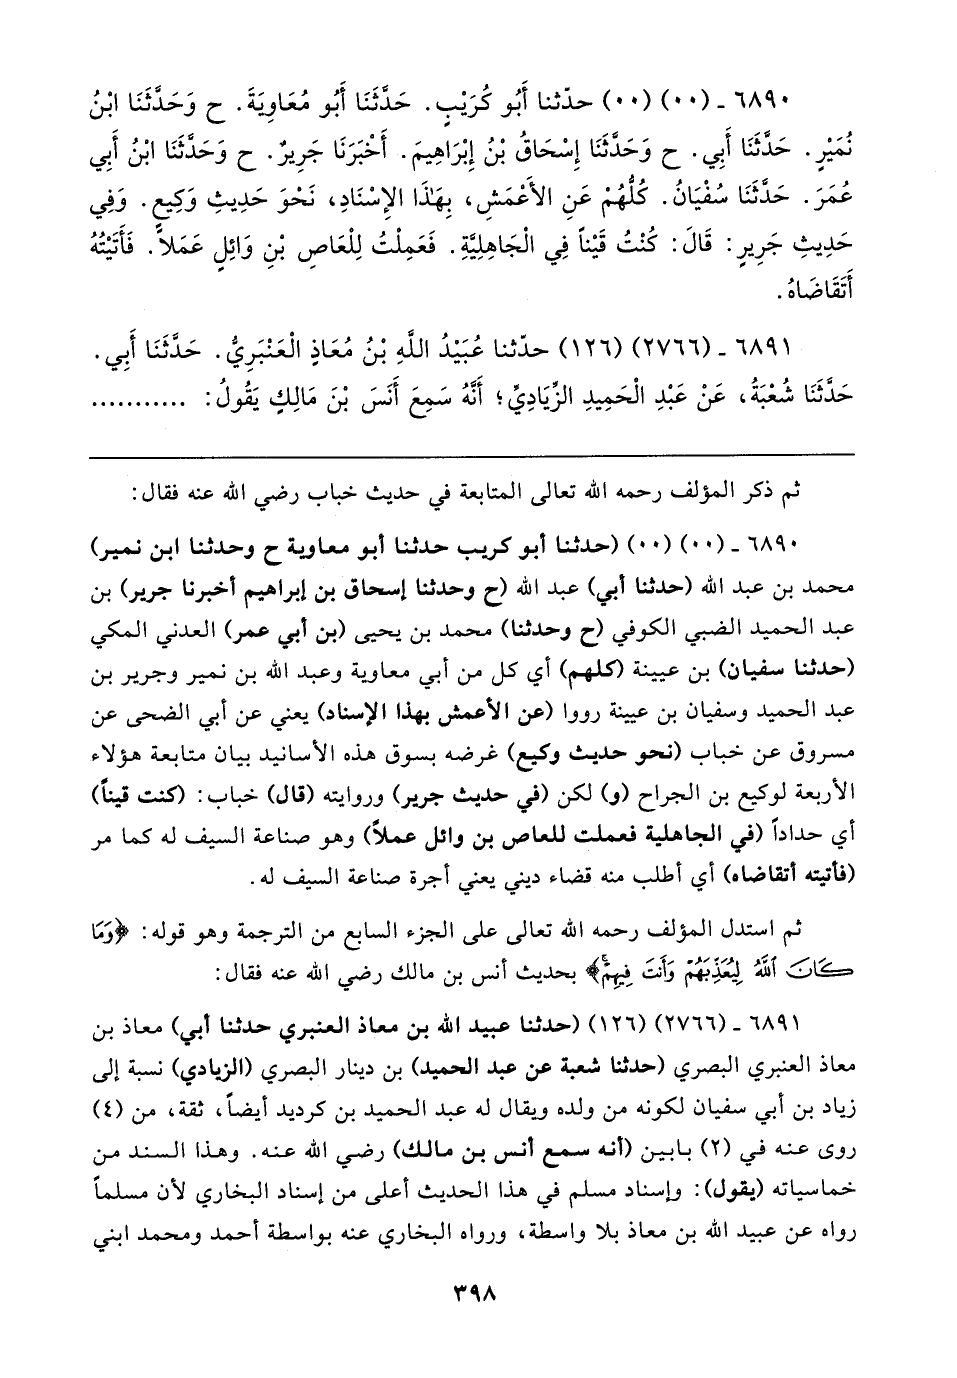 ٦٨٩٠ ـ (٠٠) (٠٠) حدّثنا أَبُو كُرَيْبٍ. حَدَّثَنَا أَبُو مُعَاوِيَةَ. ح وَحَدَّثَنَا ابْنُ
نُمَيْرٍ. حَدَّثَنَا أَبِي. ح وَحَدَّثَنَا إِسْحَاقُ بْنُ إِبْرَاهِيمَ. أَخْبَرَنَا جَرِيرٌ. ح وَحَدَّثَنَا ابْنُ أَبِي
عُمَرَ. حَدَّثَنَا سُفْيَانُ. كُلُّهُمْ عَنِ الأَعْمَشِ، بِهَذَا الإِسْنَادِ، نَحْوَ حَدِيثِ وَكِيعٍ. وَفِي
حَدِيثِ جَرِيرٍ: قَالَ: كُنْتُ قَيْناً فِي الْجَاهِلِيَّةِ. فَعَمِلْتُ لِلْعَاصِ بْنِ وَائِلٍ عَمَلاً. فَأَتَيْتُهُ
أَتَقَاضَاهُ.
٦٨٩١ ـ (٢٧٦٦) (١٢٦) حدّثنا عُبَيْدُ اللَّهِ بْنُ مُعَاذٍ الْعَنْبَرِيُّ. حَدَّثَنَا أَبِي.
حَدَّثَنَا شُعْبَةُ، عَنْ عَبْدِ الْحَمِيدِ الزِّيَادِيِّ؛ أَنَّهُ سَمِعَ أَنَسَ بْنَ مَالِكٍ يَقُولُ: ...........
ثم ذكر المؤلف رحمه الله تعالى المتابعة في حديث خباب رضي الله عنه فقال:
٦٨٩٠ ـ (٠٠) (٠٠) (حدثنا أبو كريب حدثنا أبو معاوية ح وحدثنا ابن نمير)
محمد بن عبد الله (حدثنا أبي) عبد الله (ح وحدثنا إسحاق بن إبراهيم أخبرنا جرير) بن
عبد الحميد الضبي الكوفي (ح وحدثنا) محمد بن يحيى (بن أبي عمر) العدني المكي
(حدثنا سفيان) بن عيينة (كلهم) أي كل من أبي معاوية وعبد الله بن نمير وجرير بن
عبد الحميد وسفيان بن عيينة رووا (عن الأعمش بهذا الإسناد) يعني عن أبي الضحى عن
مسروق عن خباب (نحو حديث وكيع) غرضه بسوق هذه الأسانيد بيان متابعة هؤلاء
الأربعة لوكيع بن الجراح (و) لكن (في حديث جرير) وروايته (قال) خباب: (كنت قيناً)
أي حداداً (في الجاهلية فعملت للعاص بن وائل عملاً) وهو صناعة السيف له كما مر
(فأتيته أتقاضاه) أي أطلب منه قضاء ديني يعني أجرة صناعة السيف له.
ثم استدل المؤلف رحمه الله تعالى على الجزء السابع من الترجمة وهو قوله: ﴿وَمَا
كَانَ ٱللَّهُ لِيُعَذِّبَهُمْ وَأَنتَ فِيهِمْ﴾ بحديث أنس بن مالك رضي الله عنه فقال:
٦٨٩١ ـ (٢٧٦٦) (١٢٦) (حدثنا عبيد الله بن معاذ العنبري حدثنا أبي) معاذ بن
معاذ العنبري البصري (حدثنا شعبة عن عبد الحميد) بن دينار البصري (الزيادي) نسبة إلى
زياد بن أبي سفيان لكونه من ولده ويقال له عبد الحميد بن كرديد أيضاً، ثقة، من (٤)
روى عنه في (٢) بابين (أنه سمع أنس بن مالك) رضي الله عنه. وهذا السند من
خماسياته (يقول): وإسناد مسلم في هذا الحديث أعلى من إسناد البخاري لأن مسلماً
رواه عن عبيد الله بن معاذ بلا واسطة، ورواه البخاري عنه بواسطة أحمد ومحمد ابني
٣٩٨